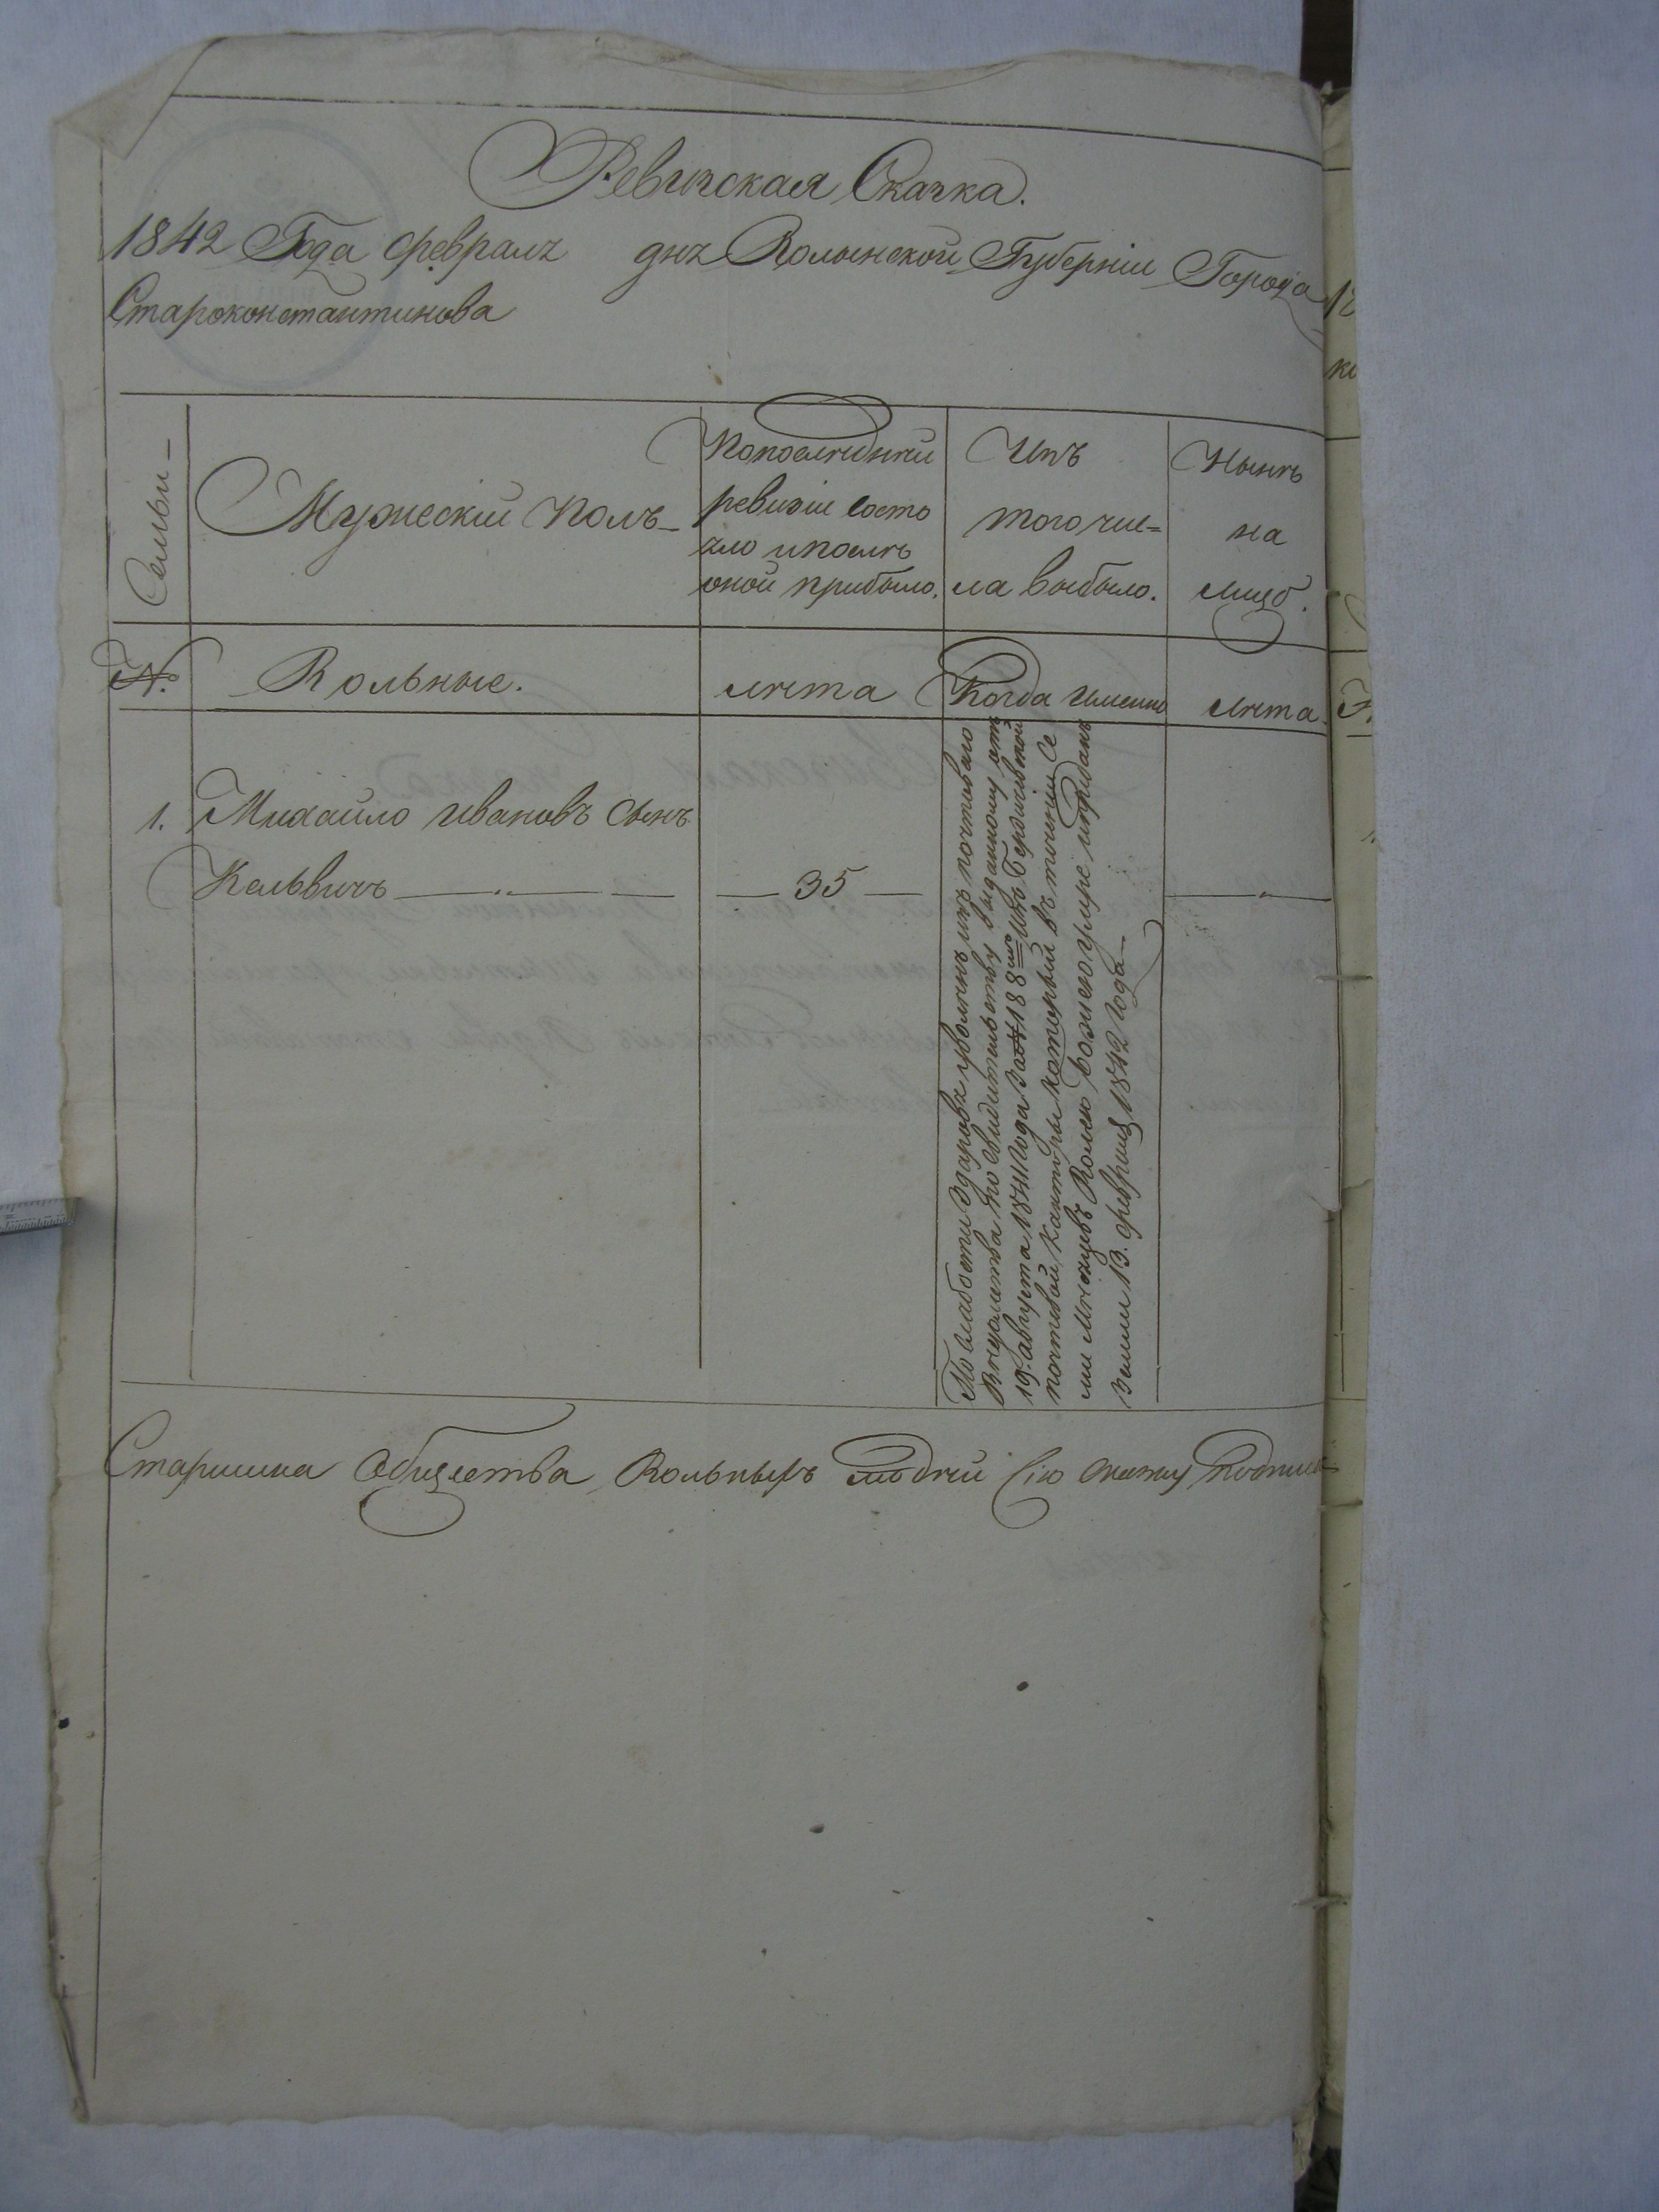 Ревизская Сказка.
1842 Года февраля дня Волынской Губерніи Города
Староконстантинова
Семьи
Мужескій Полъ
Попоследней
ревизіи состо
яло и после
оной прибыло.
Изъ
того чис=
ла выбыло.
Нынѣ
на
лицо.
N.
Вольные.
лѣта
Когда именно
лѣта
1. Михайло Ивановъ сынъ
Кельвичъ 35
По слабости здаровья уволенъ изъ почтоваго
Вѣдомства по свидѣтельству выданному отъ
19. августа 1841 Года за № 188 изъ Бердичевской
почтовой канторы который въ теченіи се
ми Мѣсяцевъ Волею Божіею умре и преданъ
земли 13. февраля 1842 года
Старшина Общества Вольныхъ людей сію сказку